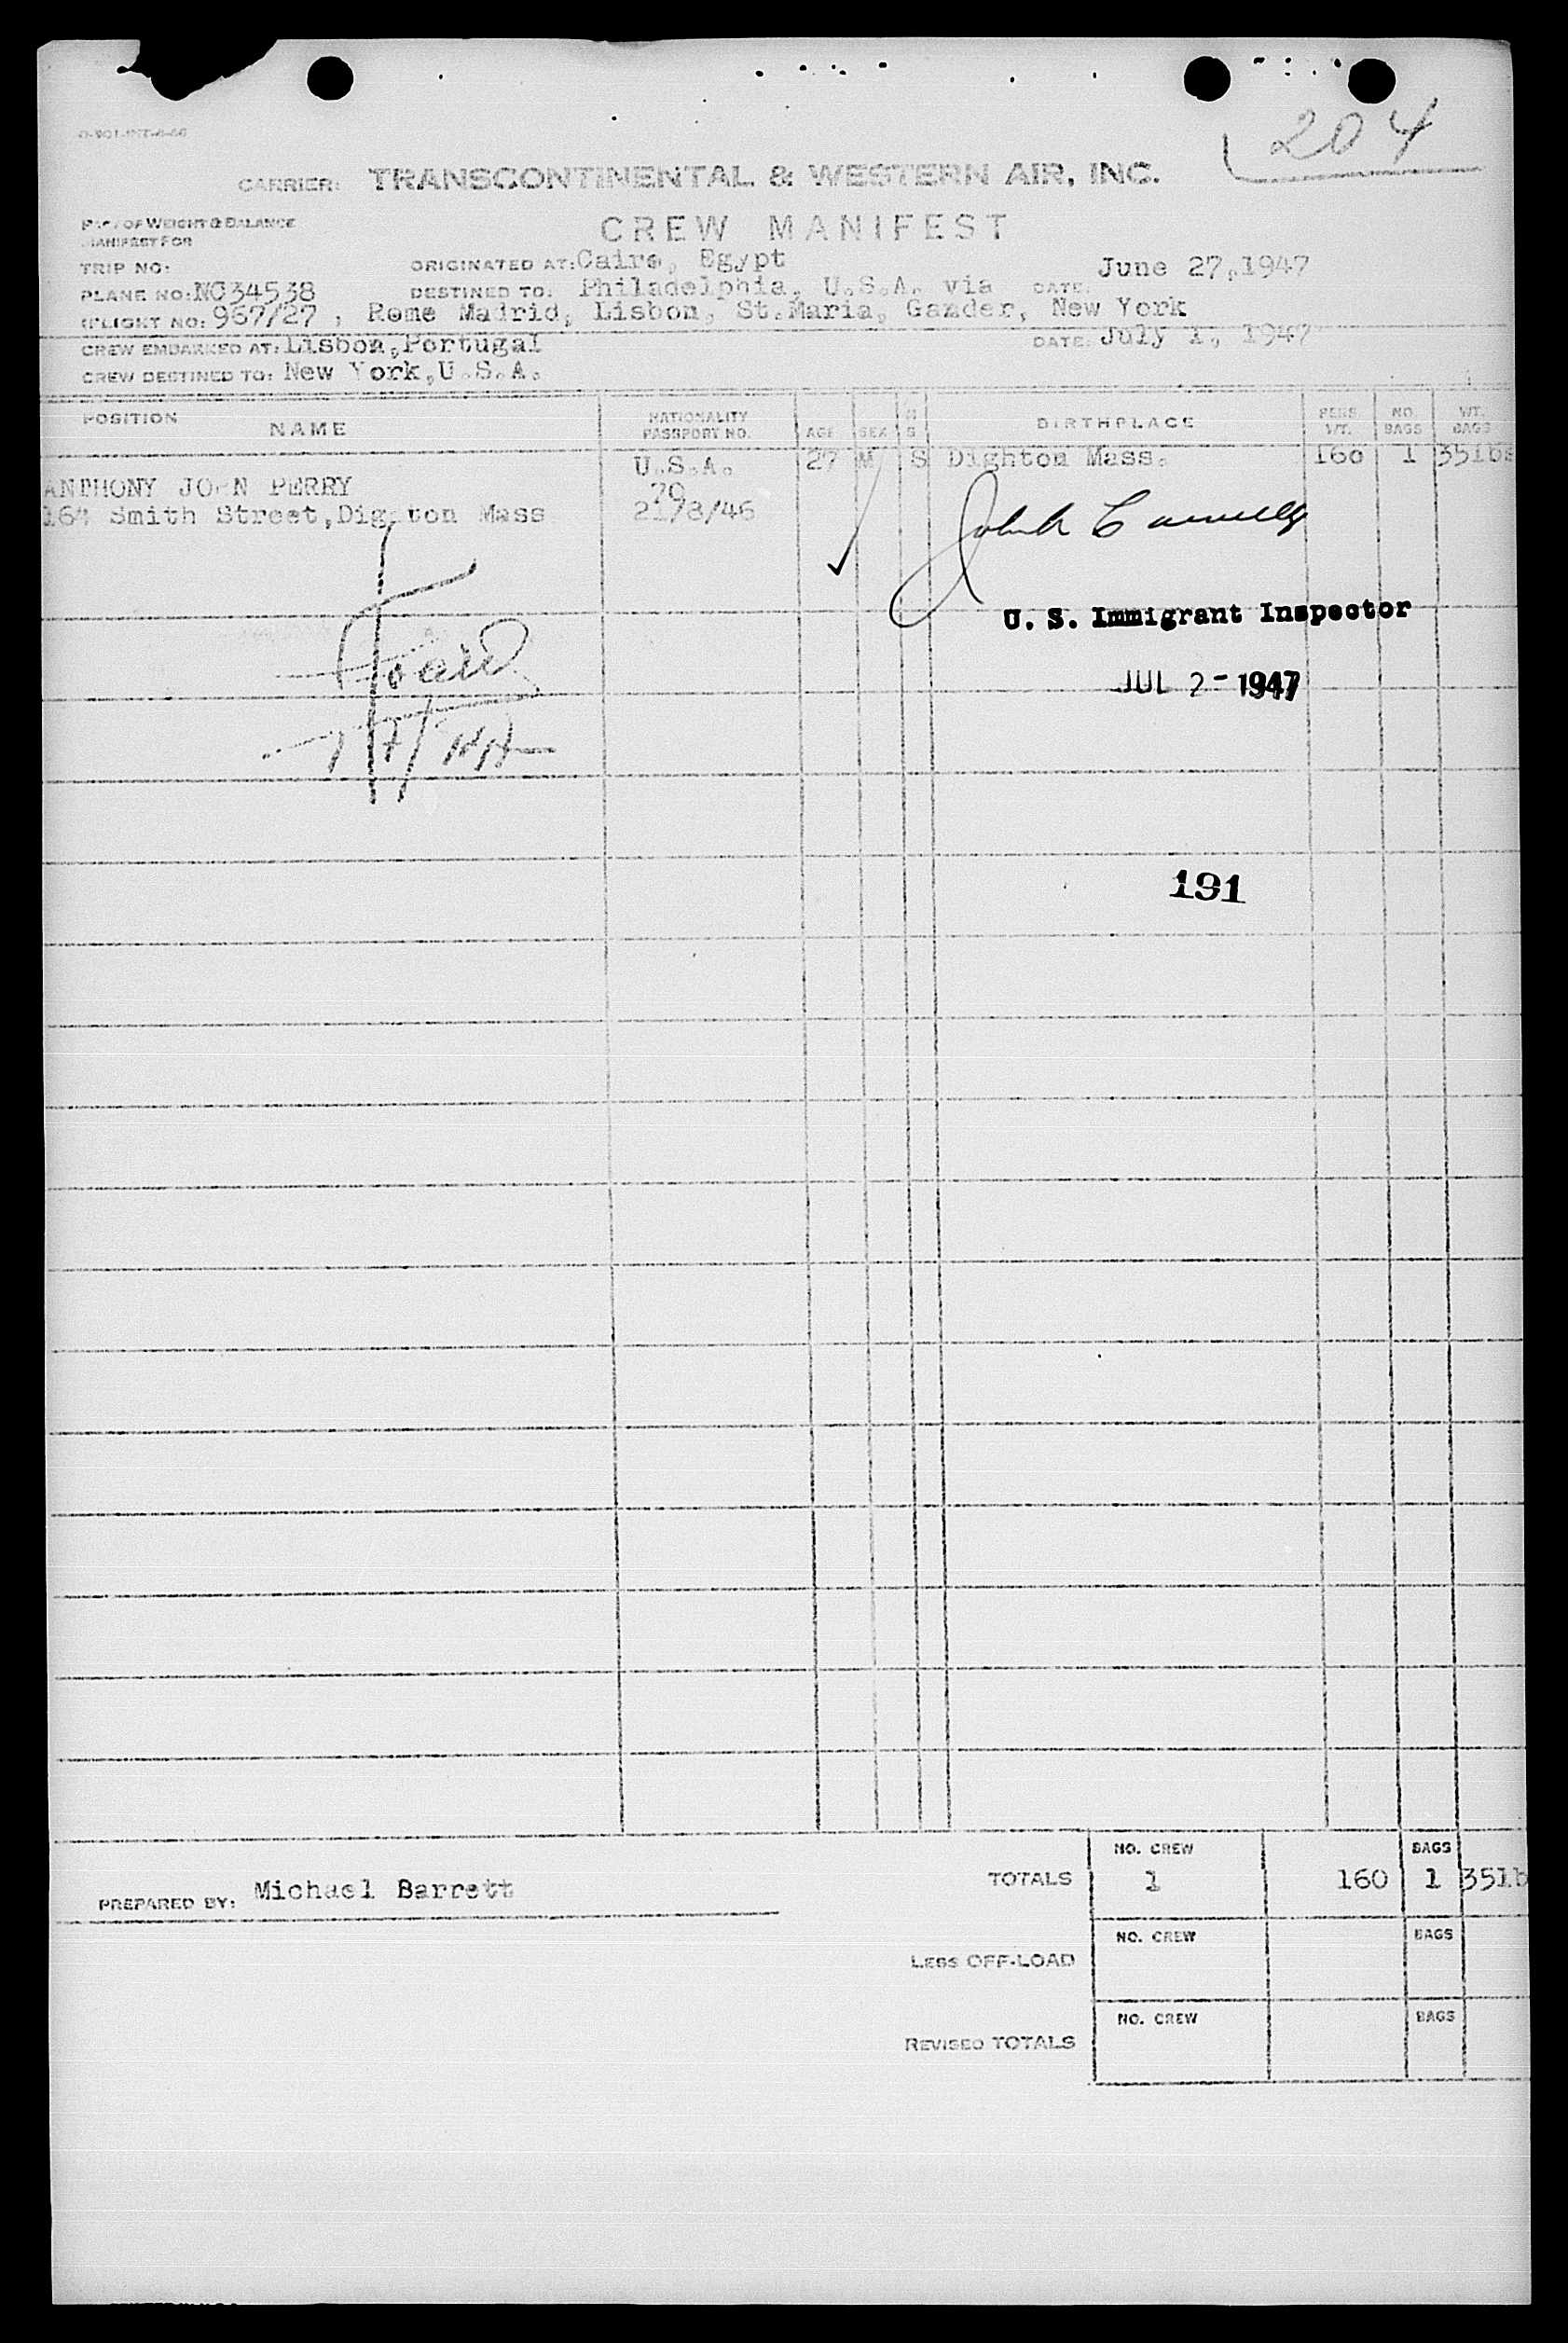 204
CARRIER: TRANSCONTINENTAL & WESTERN AIR, INC.
CREW MANIFEST
OF WEIGHT & BALANCE
MANIFEST FOR
TRIP NO: ORIGINATED AT: Cairo, Egypt June 27,1947
PLANE NO: NC34538 DESTINED TO: Philadelphia, U.S.A. via DATE:
FLIGHT NO: 967/27 , Rome Madrid, Lisbon, St.Maria, Gander, New York
CREW EMBARKED AT: Lisbon,Portugal DATE: July 1, 1947
CREW DESTINED TO: New York,U.S.A.
POSITION NAME NATIONALITY PASSPORT NO. AGE SEX M S BIRTHPLACE PERS. WT. NO. BAGS WT. BAGS
U.S.A. 27 M S Dighton Mass. 160 1 35lbs
ANTHONY JOHN PERRY 70
Smith Street,Dighton Mass 2178/46
U. S. Immigrant Inspector
JUL 2 - 1947
191
PREPARED BY: Michael Barrett
TOTALS NO. CREW 1 160 BAGS 1 35lb
LESS OFF-LOAD NO. CREW BAGS
REVISED TOTALS NO. CREW BAGS